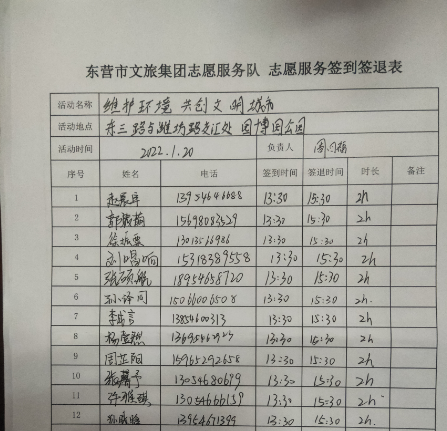 东营市文旅集团志愿服务队 志愿服务签到签退表
活动名称 维护环境 共创文明城市
活动地点 东三路与潍坊路交汇处 园博园公园
活动时间 2022.1.20 负责人
序号 姓名 电话 签到时间 签退时间 时长 备注
1 13954646688 13:30 15:30 2h
2 15698083529 13:30 15:30 2h
3 徐振栗 13:30 15:30 2h
4 刘鸣响 15318389558 13:30 15:30 2h
5 张硕航 18954658720 13:30 15:30 2h
6 孙泽同 15066006508 13:30 15:30 2h.
7 李成言 13854600313 13:30 15:30 2h
8 13:30 15:30 2h
9 周芷阳 15965292658 13:30 15:30 2h
10 13054680699 13:30 15:30 2h
11 13054666159 13:30 15:30 2h
12 13954671399 13:30 15:30 2h